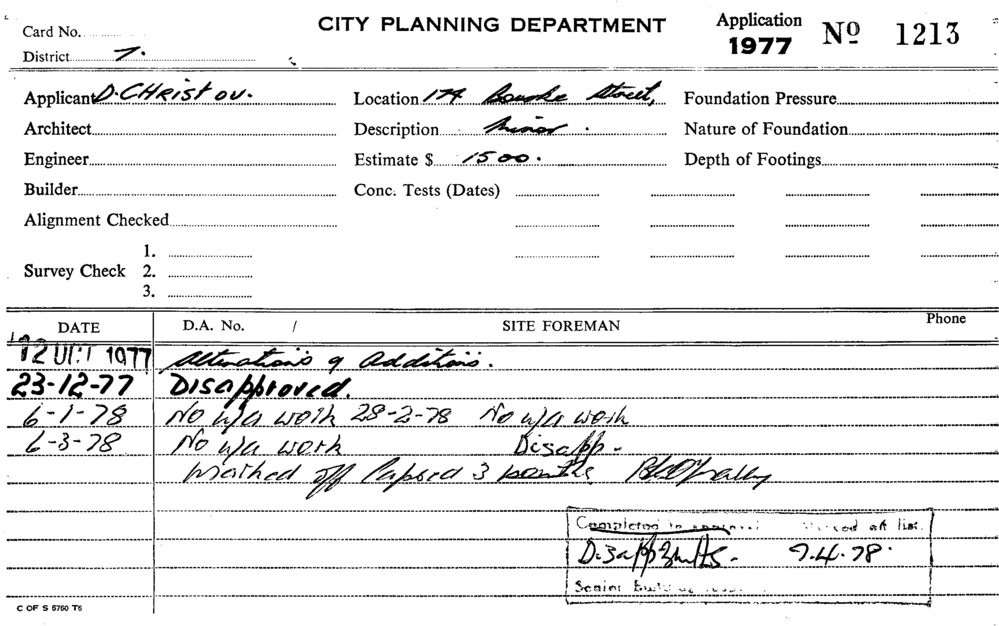 Card No.
CITY PLANNING DEPARTMENT
Application
1977
Nº 1213
District 7.
Applicant D. CHRISTOV.
Location 174 Bourke Street,
Foundation Pressure
Architect
Description Minor.
Nature of Foundation
Engineer
Estimate $ 1500.
Depth of Footings
Builder
Conc. Tests (Dates)
Alignment Checked
1.
Survey Check 2.
3.
DATE D.A. No. / SITE FOREMAN Phone
12 OCT 1977 Alterations & Additions.
23-12-77 Disapproved.
6-1-78 No u/a work 28-2-78 No u/a work
6-3-78 No u/a work Disapp.
Marked off lapsed 3 months
Completed to off list.
Disapp 3mths. 7.4.78.
Senior
C OF S 5760 T6